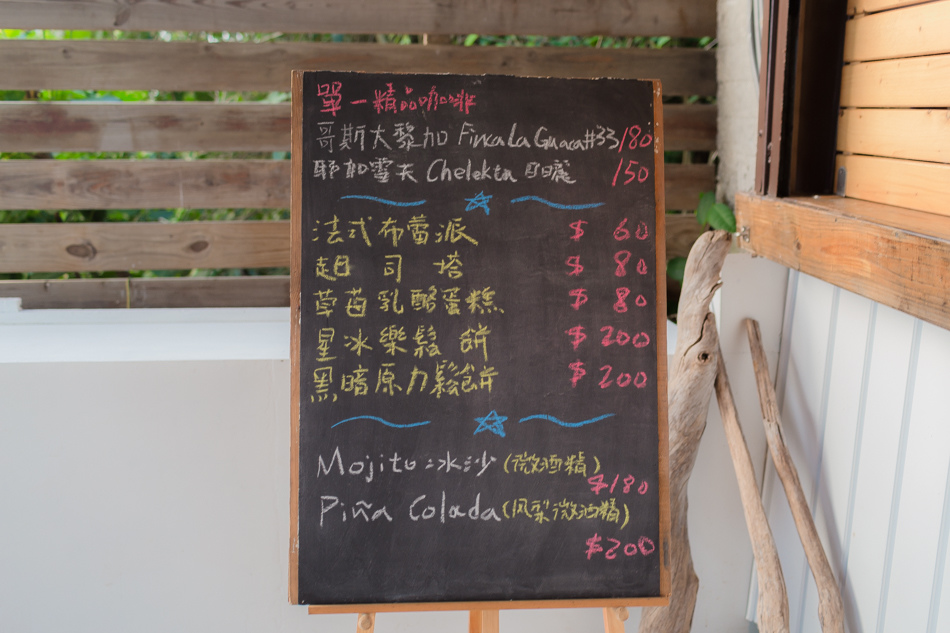 單一精品咖啡
哥斯大黎加 Finca La Guaca #33 180
耶加雪夫 Chelekta 日曬 150
法式布蕾派 $ 60
起司塔 $ 80
草莓乳酪蛋糕 $ 80
星冰樂鬆餅 $ 200
黑暗原力鬆餅 $ 200
Mojito 冰沙 (微酒精)
$180
Piña Colada (鳳梨微酒精)
$200